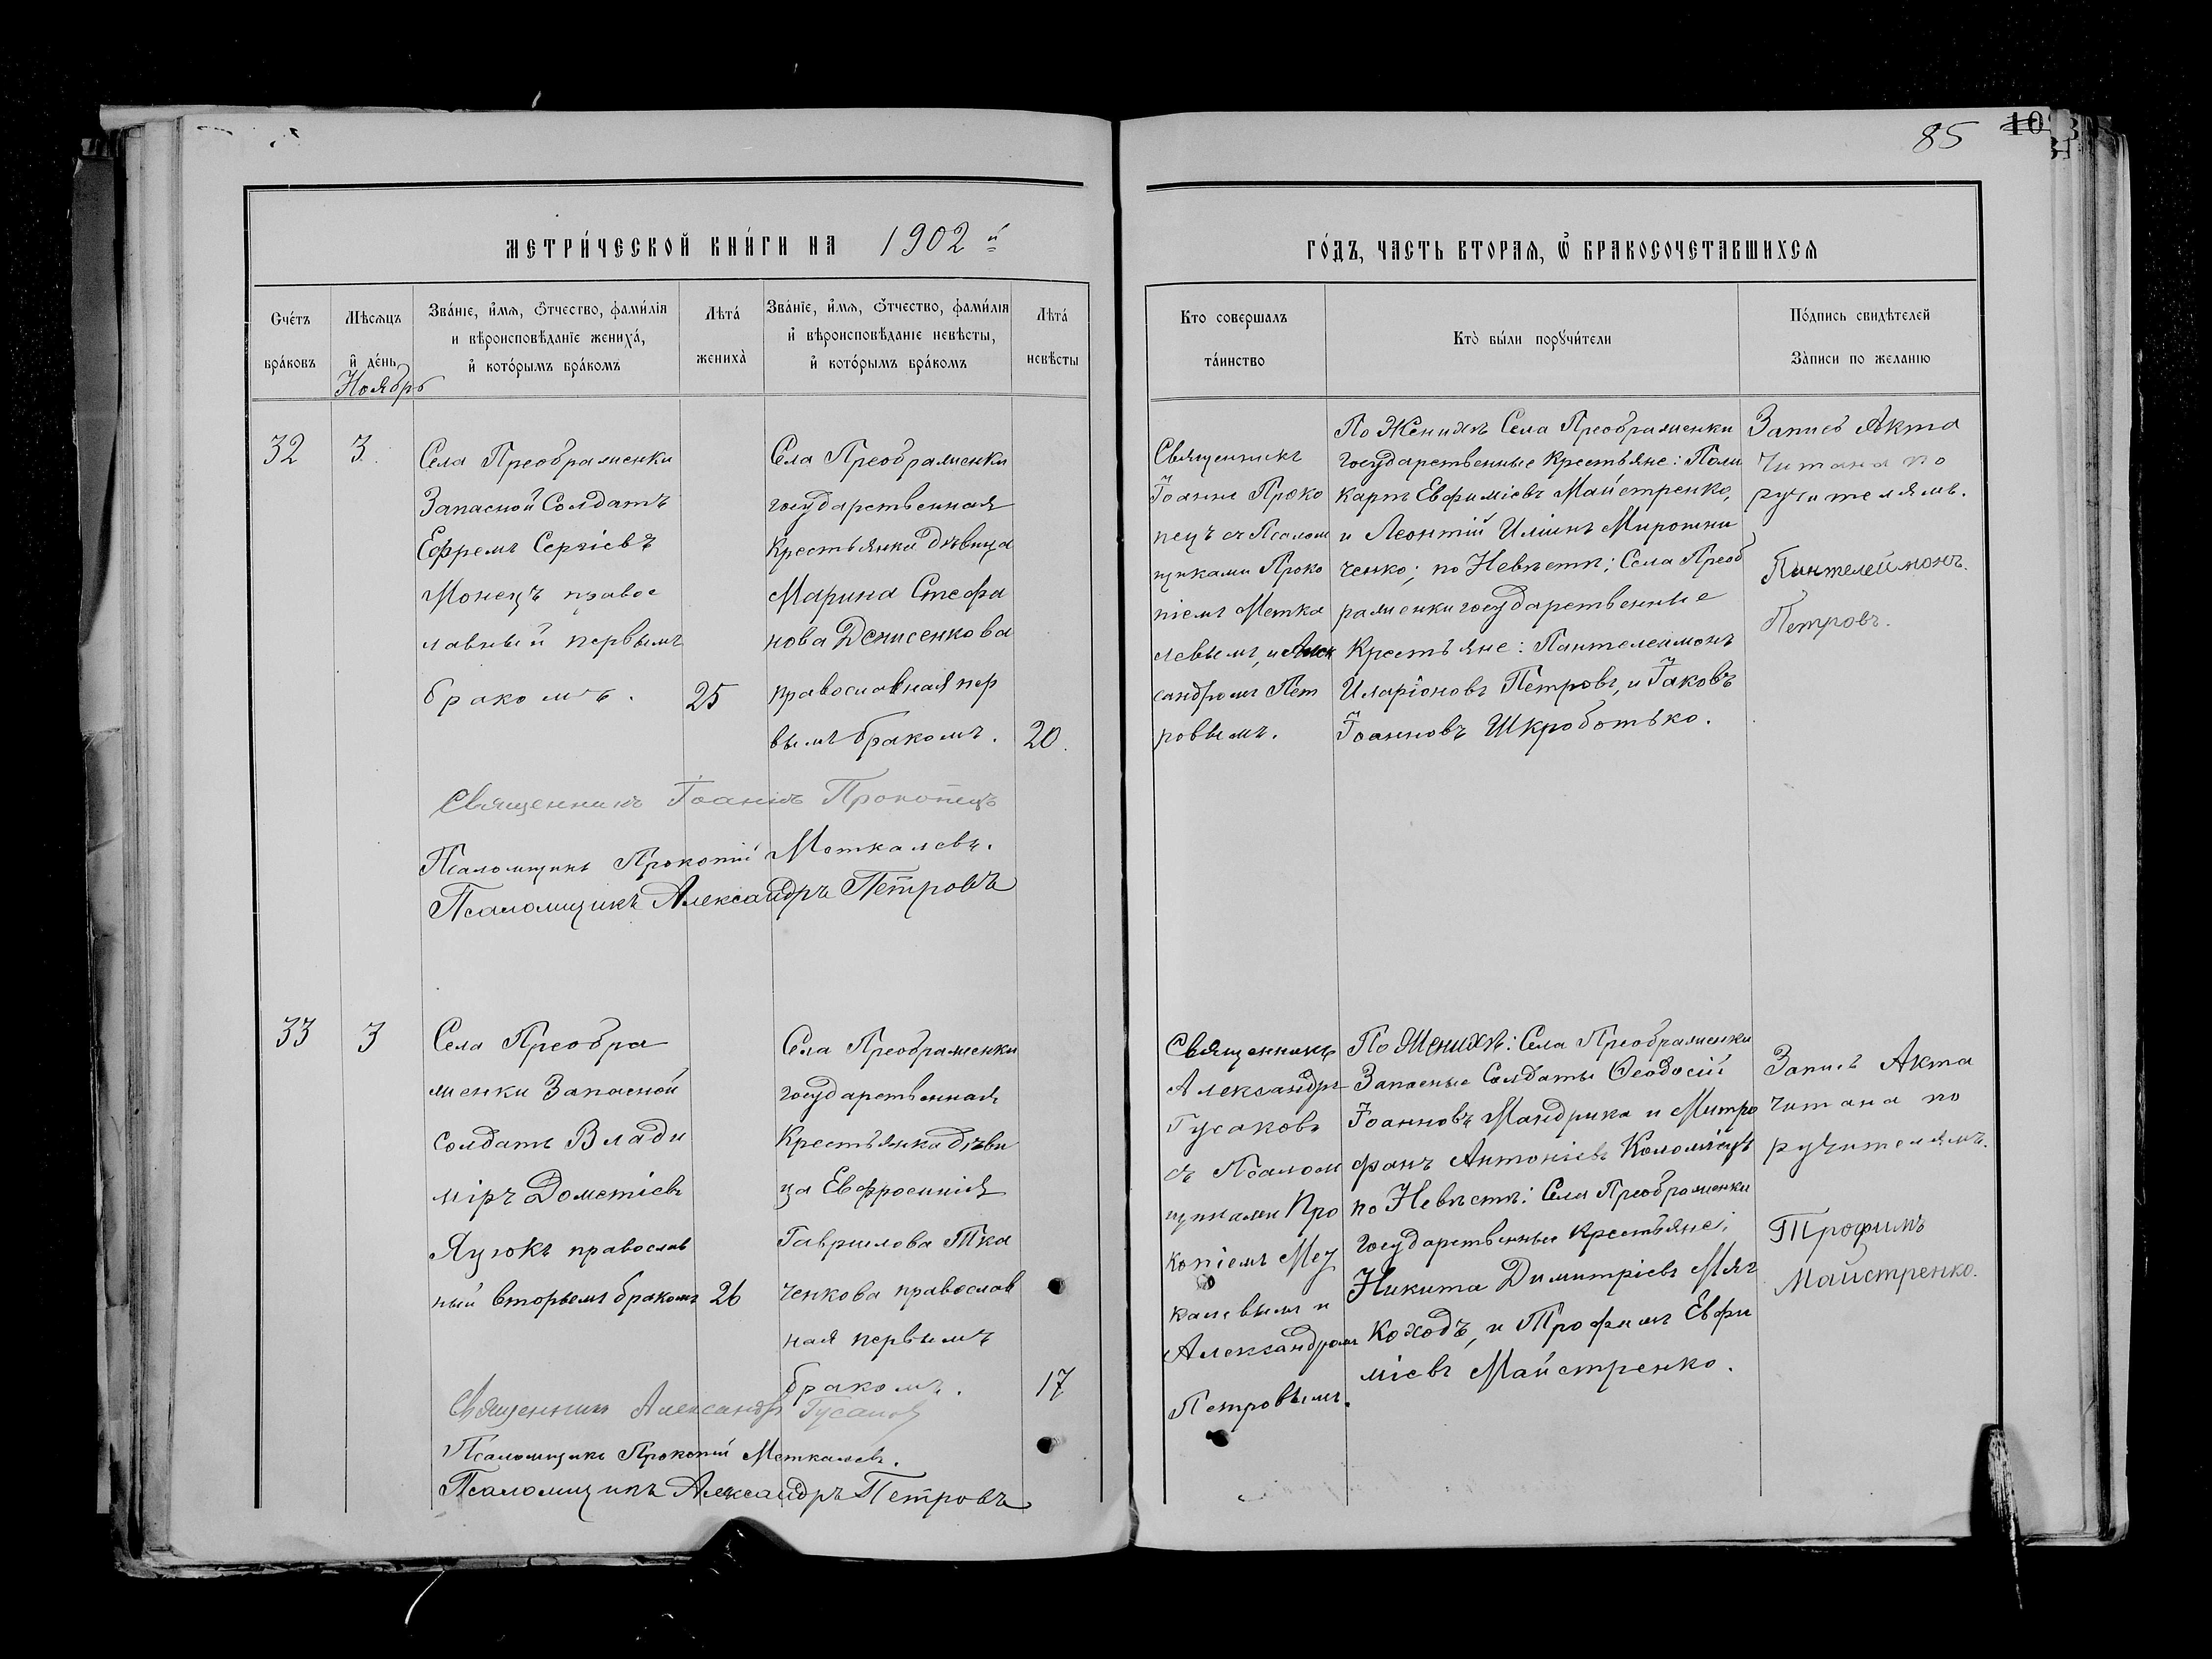 85
10
МЕТРИ́ЧЕСКОЙ КНИ́ГИ НА 1902 й
ГО́ДЪ, ЧАСТЬ ВТОРАЯ, Ѿ БРАКОСОЧЕТАВШИХСЯ
Сче́тъ бра́ковъ
Мѣсяцъ и де́нь
Ноябрь
Зва́ніе, и́мя, о́тчество, фами́лія
и вѣроисповѣданіе жениха́,
и кото́рымъ бра́комъ
Лѣта́ жениха̀
Зва́ніе, и́мя, о́тчество, фами́лія
и вѣроисповѣданіе невѣсты,
и кото́рымъ бра́комъ
Лѣта́ невѣсты
Кто совершалъ та́инство
Кто̀ бы́ли поручи́тели
По́дпись свидѣтелей
За̀писи по желанію
32
3
Села Преображенки
Запасной Солдатъ
Ефремъ Сергіевъ
Монецъ правос
лавный первымъ
бракомъ.
25
Села Преображенки
государственная
Крестьянка дѣвица
Марина Стефа
нова Денисенкова
православная пер
вымъ бракомъ.
20.
Священникъ
Іоаннъ Проко
пецъ съ Псалом
щиками Проко
піемъ Метка
левымъ, и Алек
сандромъ Пет
ровымъ.
По Женихѣ Села Преображенки
государственные Крестьяне: Поли
карпъ Евфиміевъ Майстренко,
и Леонтій Иліинъ Мирошни
ченко; по Невѣстѣ: Села Преоб
раженки государственные
Крестьяне: Пантелеимонъ
Иларіоновъ Петровъ, и Іаковъ
Іоанновъ Шкроботько.
Запись Акта
читана по
ручителямъ.
Пантелеймонъ
Петровъ.
Священникъ Іоаннъ Прокопецъ
Псаломщикъ Прокопій Меткалевъ.
Псаломщикъ Александръ Петровъ
33
3
Села Преобра
женки Запасной
солдатъ Влади
міръ Дометіевъ
Яцюкъ православ
ный вторымъ бракомъ
26
Села Преображенки
государственная
Крестьянка дѣви
ца Евфросинія
Гавриилова Тка
ченкова православ
ная первымъ
бракомъ.
17
Священникъ
Александръ
Гусаковъ
съ Псалом
щиками Про
копіемъ Мет
калевымъ и
Александромъ
Петровымъ.
По Женихѣ: Села Преображенки
Запасные Солдаты Ѳеодосій
Іоанновъ Мандрика и Митро
фанъ Антоніевъ Коломіецъ
по Невѣстѣ: Села Преображенки
государственные Крестьяне:
Никита Димитріевъ Мяг
коходъ, и Трофимъ Евфи
міевъ Майстренко.
Запись Акта
читана по
ручителямъ.
Трофимъ
Майстренко.
Священникъ Александръ Гусаковъ
Псаломщикъ Прокопій Меткалевъ.
Псаломщикъ Александръ Петровъ